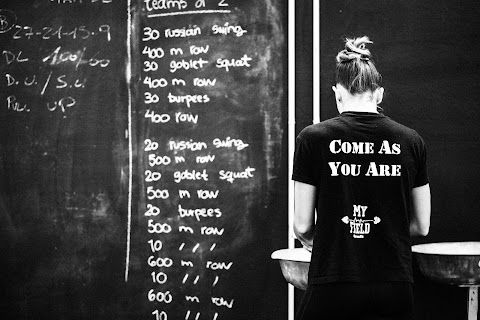 27-21-15-9
DL 100/
D.U./S.U.
Pull UP
teams of 2
30 russian swing
400 m row
30 goblet squat
400 m row
30 burpees
400 row
20 russian swing
500 m row
20 goblet squat
500 m row
20 burpees
500 m row
10 ′′ ′′
600 m row
10 ′′ ′′
600 m row
10 ′′ ′′
COME AS
YOU ARE
MY
FIELD